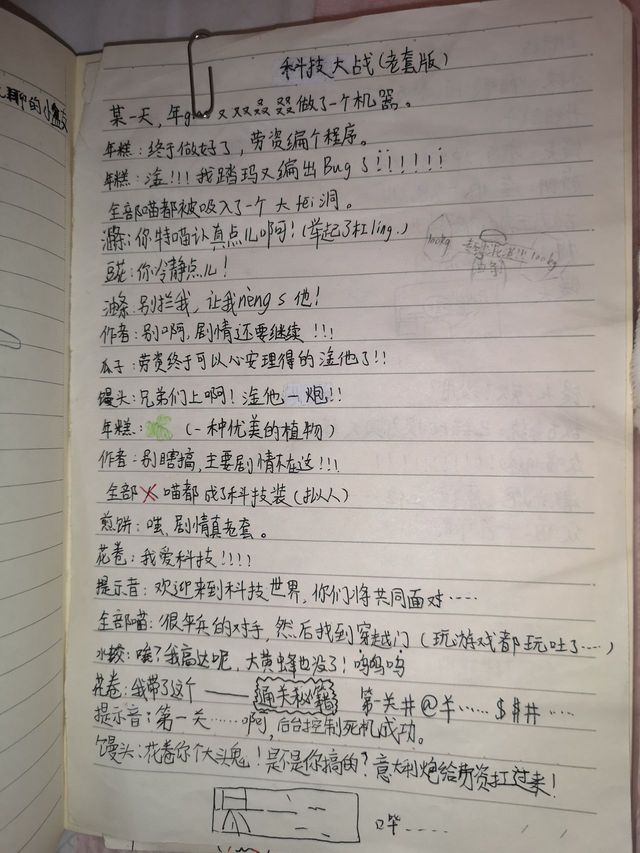 聊的小盒
科技大战(老套版)
某一天,年g 又 双 叒 叕 做了一个机器。
年糕:终于做好了,劳资编个程序。
年糕:淦!!!我踏玛又编出Bug了!!!!!!
全部喵都被吸入了一个大hei洞。
油条:你特喵认真点儿啊阿!(举起了杠ling.)
豆花:你冷静点儿!
油条:别拦我,让我nèng s 他!
作者:别啊,剧情还要继续!!!
瓜子:劳资终于可以心安理得的淦他了!!
馒头:兄弟们上啊!淦他一炮!!
年糕: (一种优美的植物)
作者:别瞎搞,主要剧情不在这!!!
全部 喵都成了科技装(拟人)
煎饼:嗤,剧情真老套。
花卷:我爱科技!!!!
提示音:欢迎来到科技世界,你们将共同面对……
全部喵:很辛兵的对手,然后找到穿越门(玩游戏都玩吐了……)
水饺:唉?我高达呢,大黄蜂也没了!呜呜呜
花卷:我带了这个——通关秘籍 第一关#@¥……$##……
提示音:第一关……啊,后台控制死机成功。
馒头:花卷你个大头鬼!是不是你搞的?意大利炮给劳资扛过来!
哔……
100kg
100kg